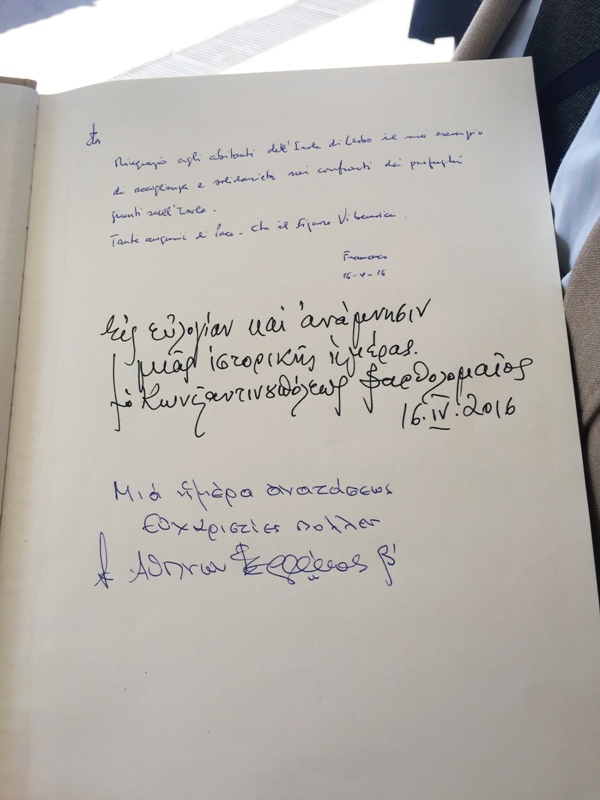 Ringrazio agli abitanti dell'Isola di Lesbo il suo esempio
di accoglienza e solidarietà nei confronti dei profughi
giunti sull'Isola.
Tanti auguri di Pace. Che il Signore Vi benedica.
Francesco
16-4-16
Εἰς εὐλογίαν καὶ ἀνάμνησιν
μιᾶς ἱστορικῆς ἡμέρας.
ὁ Κωνσταντινουπόλεως Βαρθολομαῖος
16.IV.2016
Μιά ἡμέρα ἀνατάσεως
Εὐχαριστίες πολλές
Ἀθηνῶν Ἱερώνυμος Β'